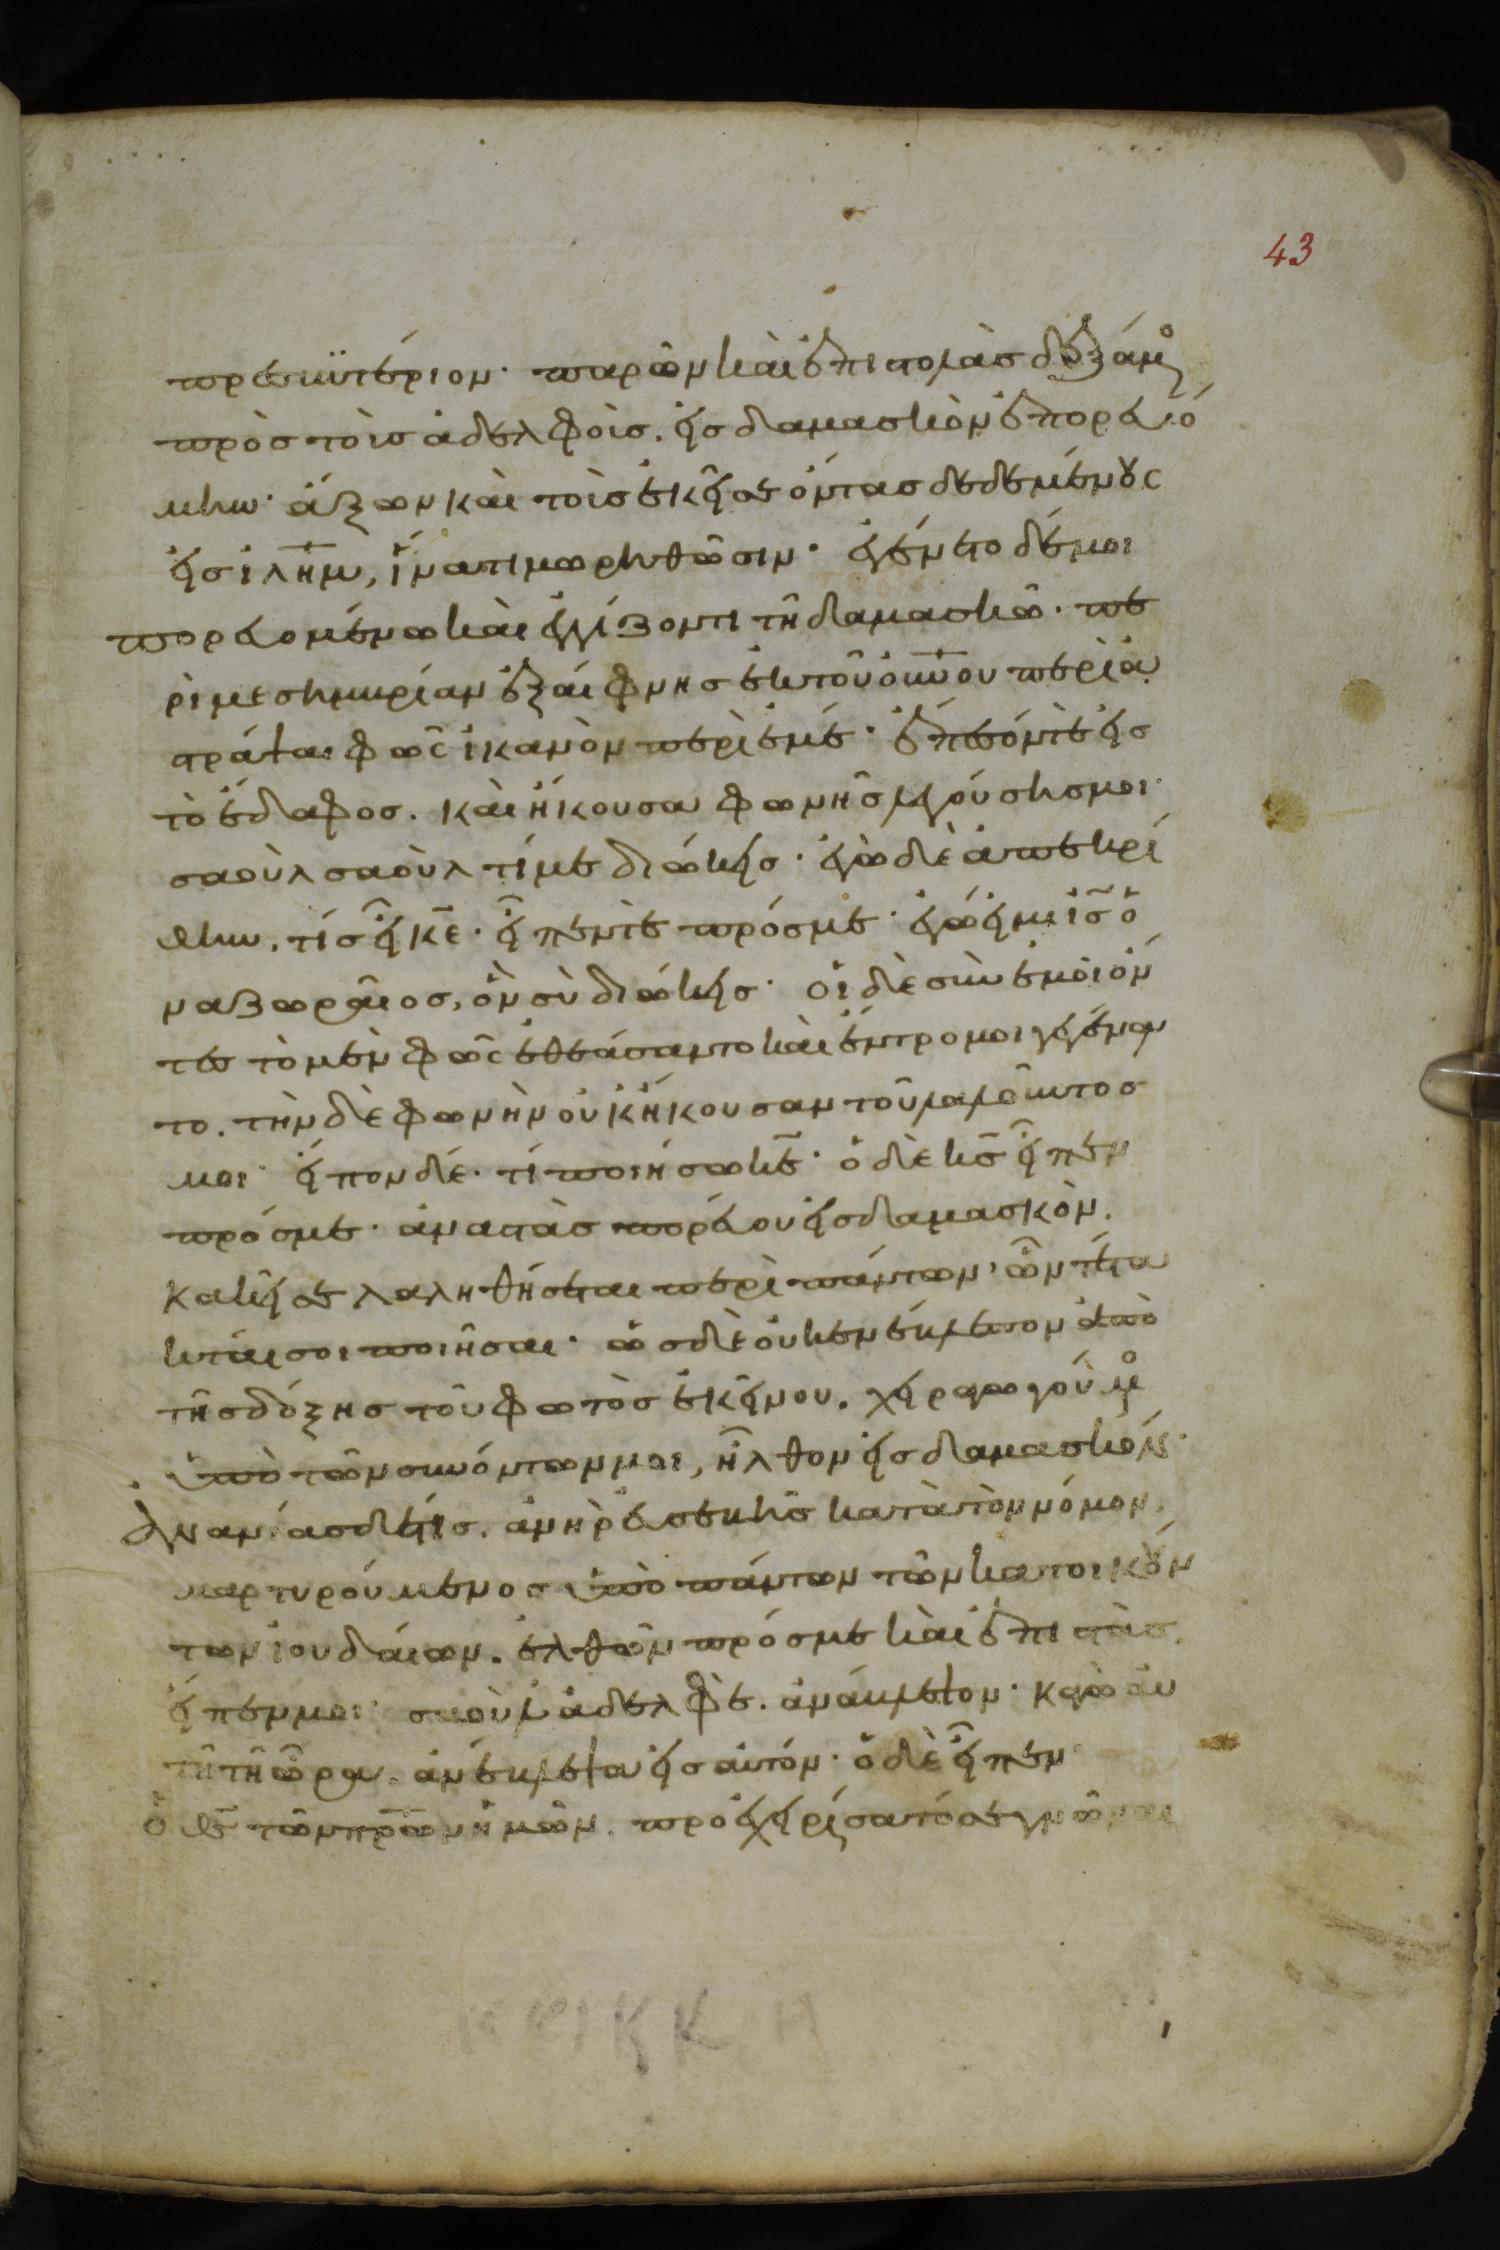 43
πρεσβϋτέριον· παρ' ὧν καὶ ἐπιστολὰς δεξάμ(εν)ο(ς)
πρὸς τοὺς ἀδελφοὺς. εἰς δαμασκὸν ἐπορευό
μην· ἄξων καὶ τοὺς ἐκεῖσε ὄντας δεδεμένους
εἰς ἱλημ, ἵνα τιμωρηθῶσιν· ἐγένετο δέ μοι
πορευομένω καὶ ἐγγίζοντι τῆ δαμασκῶ· πε
ρὶ μεσημβρίαν ἐξαίφνης ἐκ τοῦ οὐνου περιὰ
στράψαι φῶς ἱκανὸν περὶ ἐμέ· ἔπεσόν τε εἰς
τὸ ἔδαφος. καὶ ἤκουσα φωνῆς λεγούσης μοι·
σαοὺλ σαοὺλ τί με διώκεις· ἐγὼ δὲ ἀπεκρί
θην, τίς εἶ κε· εἶπέν τε πρός με· ἐγώ εἰμι ις ὁ
ναζωραῖος, ὃν σὺ διώκεις· οἱ δὲ σὺν ἐμοὶ ὄν
τες τὸ μὲν φῶς ἐθεάσαντο καὶ ἔντρομοι ἐγένον
το. τὴν δὲ φωνὴν οὐκ ἤκουσαν τοῦ λαλοῦντος
μοι· εἶπον δέ· τί ποιήσω κε· ὁ δὲ κς εἶπεν
πρός με· ἀναστὰς πορεύου εἰς δαμασκὸν.
κακεῖ σε λαληθήσεται περὶ πάντων, ὧν τέτα
κταί σοι ποιῆσαι· ὡς δὲ οὐκ ἐνέβλεπον ἀπὸ
τῆς δόξης τοῦ φωτὸς ἐκείνου. χειραγωγούμ(εν)ο(ς)
ὑπὸ τῶν συνόντων μοι, ἦλθον εἰς δαμασκόν·
Ἀνανίας δέ τις. ἀνὴρ εὐσεβὴς κατὰ τὸν νόμον,
μαρτυρούμενος ὑπὸ πάντων τῶν κατοικούν
των ἰουδαίων. ἐλθὼν πρός με καὶ ἐπιστὰς.
εἶπέν μοι· σαοὺλ ἀδελφὲ. ἀνάβλεψον· κἀγὼ αὐ
τῆ τῆ ὥρα. ἀνέβλεψα εἰς αὐτόν· ὁ δὲ εἶπεν
ὁ θς τῶν πρων ἡμῶν. προεχειρίσατό σε γνῶναι